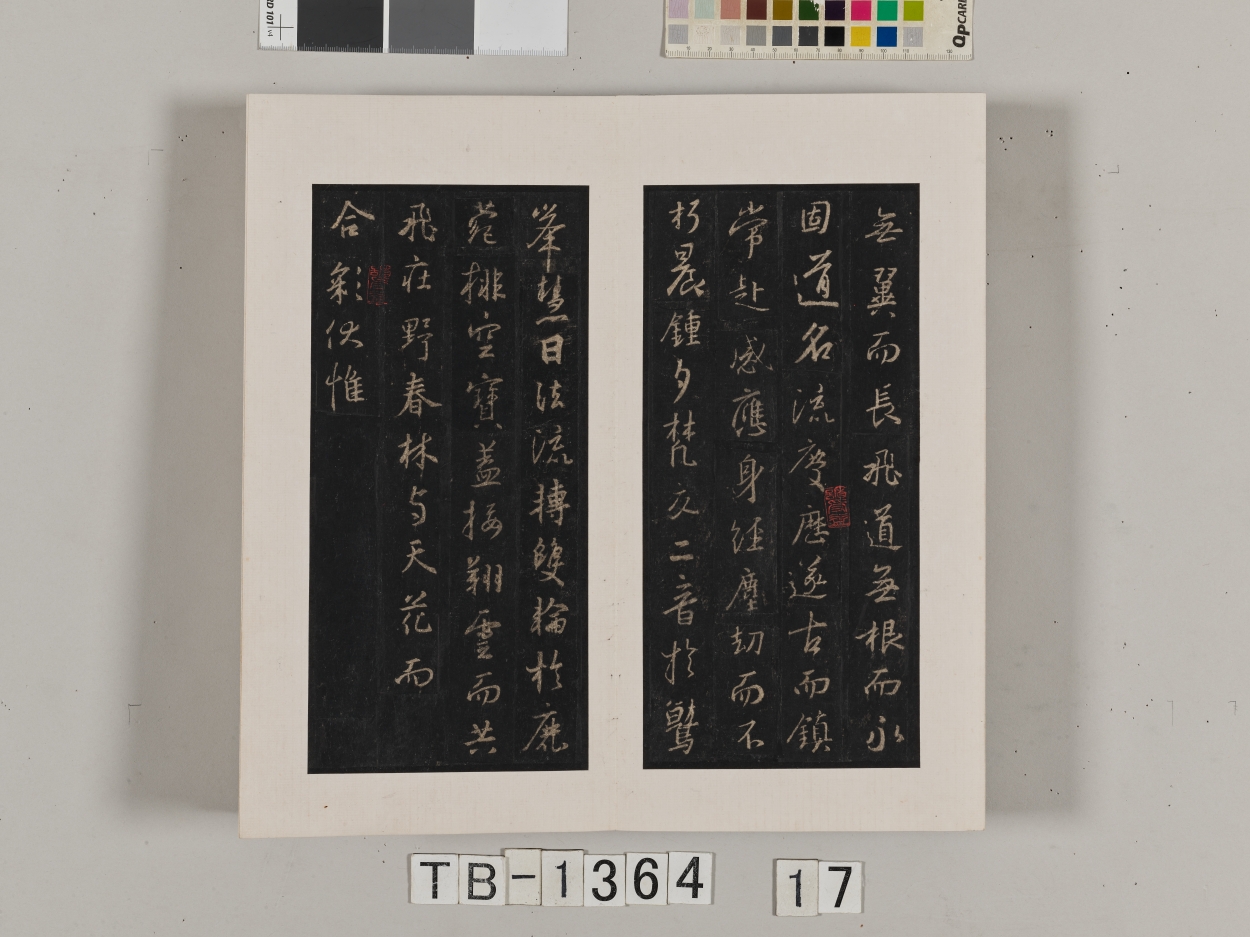 无翼而長飛道無根而永
固道名流慶歷遂古而鎮
常赴感應身經塵劫而不
朽晨鍾夕梵交二音於鷲
峯慧日法流轉雙輪於鹿
菀排空寶蓋接翔雲而共
飛莊野春林与天花而
合彩伏惟
TB-1364 17
QPCARD